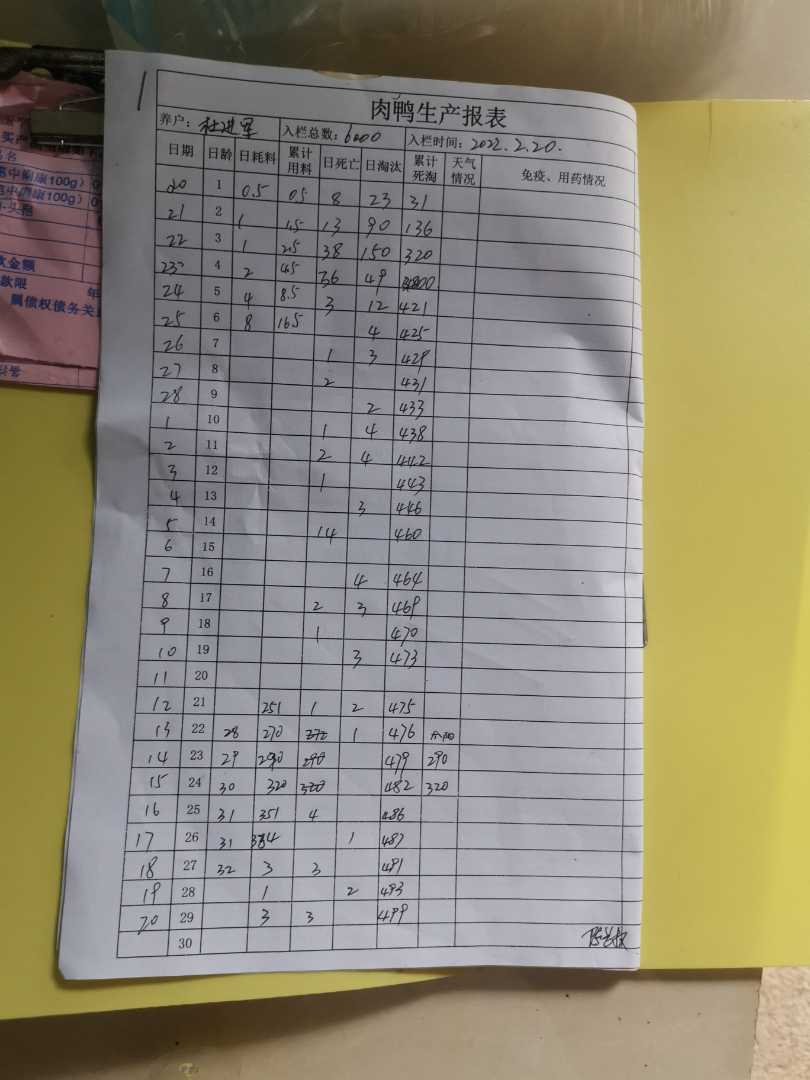 1
肉鸭生产报表
养户: 杜进军 入栏总数: 6000 入栏时间: 2022.2.20.
日期 日龄 日耗料 累计用料 日死亡 日淘汰 累计死淘 天气情况 免疫、用药情况
20 1 0.5 0.5 8 23 31
21 2 1 1.5 13 90 136
22 3 1 2.5 38 150 320
23 4 2 4.5 36 49
24 5 4 8.5 3 12 421
25 6 8 16.5 4 425
26 7 1 3 429
27 8 2 431
28 9 2 433
1 10 1 4 438
2 11 2 4 442
3 12 1 443
4 13 3 446
5 14 14 460
6 15
7 16 4 464
8 17 2 3 469
9 18 1 470
10 19 3 473
11 20
12 21 251 1 2 475
13 22 28 270 272 1 476
14 23 29 290 290 479 290
15 24 30 320 320 482 320
16 25 31 351 4 486
17 26 31 384 1 487
18 27 32 3 3 491
19 28 1 2 493
20 29 3 3 499
30
买产
名
康(100g)
康(100g)
款金额
款限 年
属债权债务关